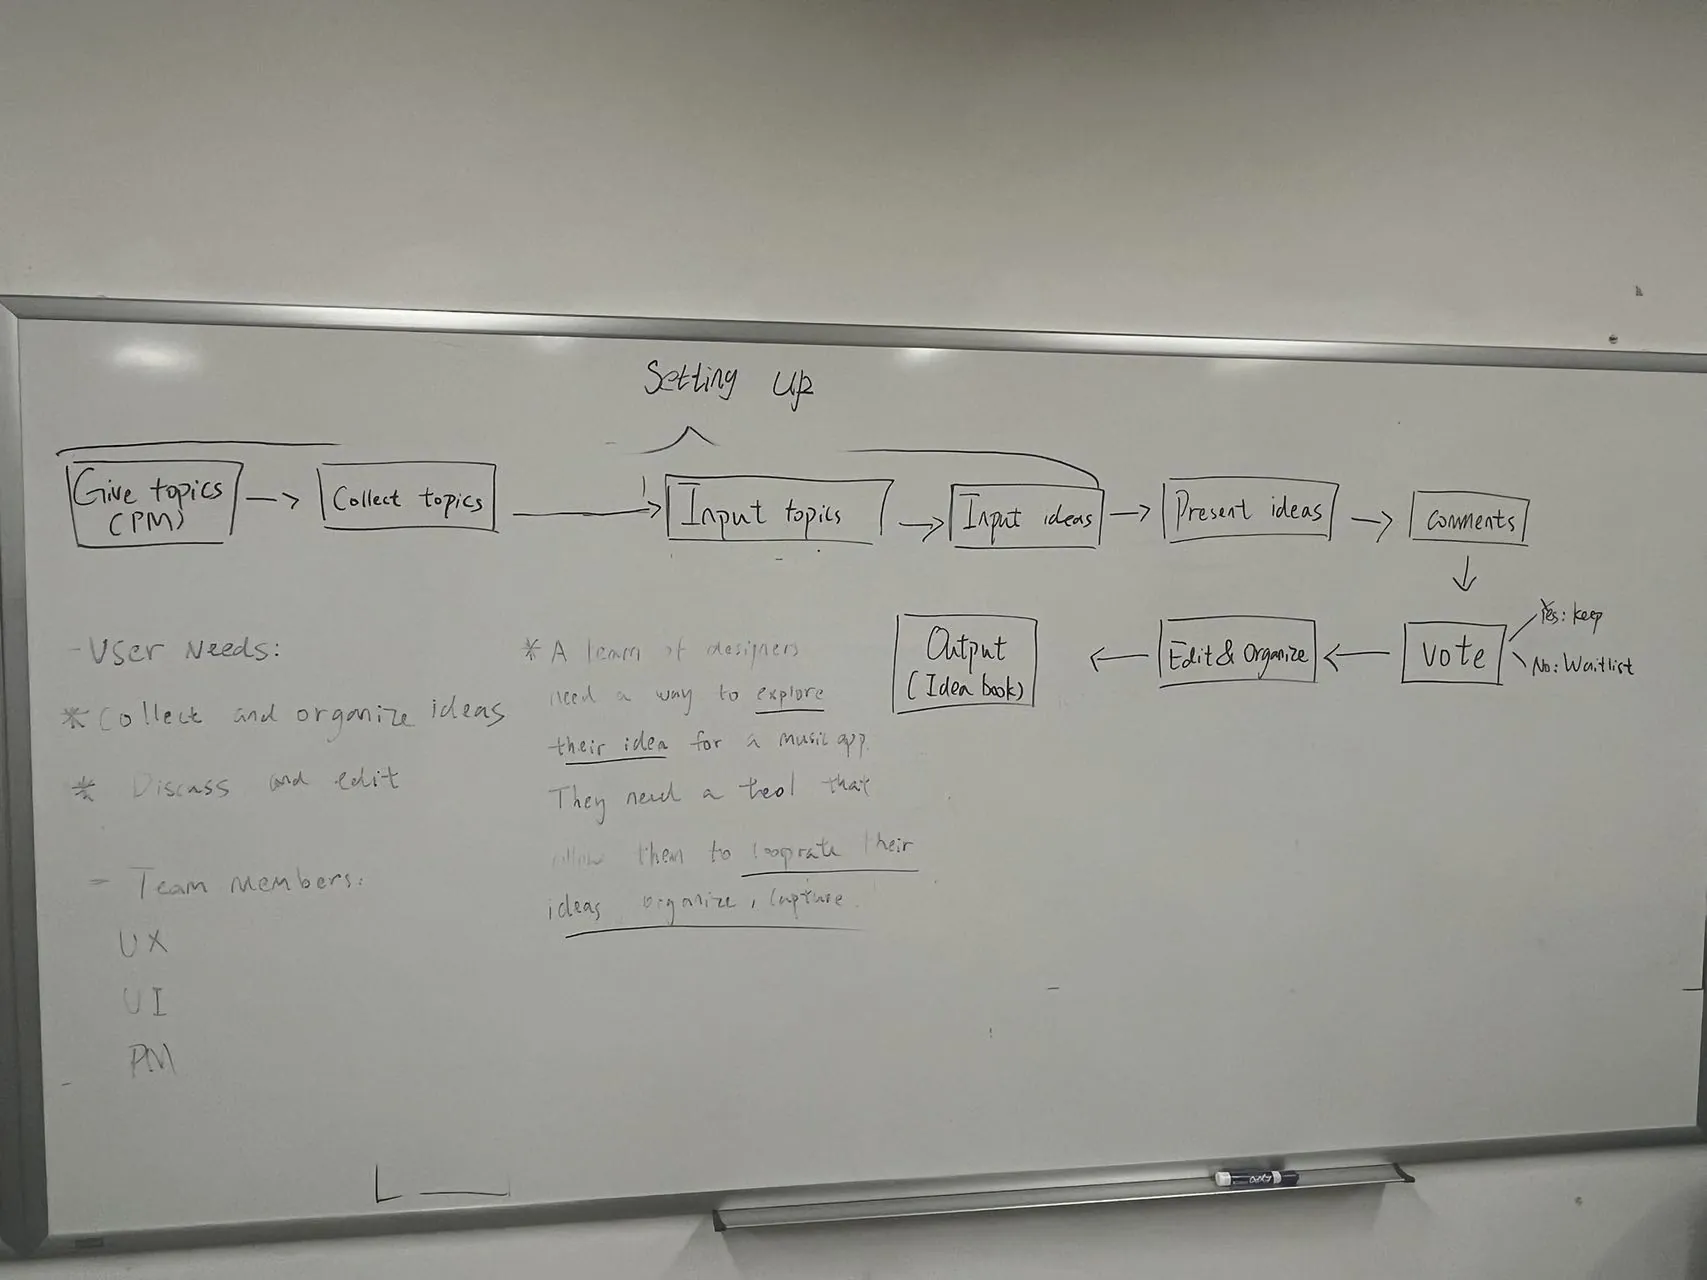 Setting up
Give topics
(PM)
Collect topics
Input topics
Input ideas
Present ideas
Comments
Vote
Yes: keep
No: Waitlist
Edit & Organize
Output
(Idea book)
- User Needs:
* Collect and organize ideas
* Discuss and edit
- Team Members:
UX
UI
PM
* A team of designers
need a way to explore
their idea for a music app.
They need a tool that
allow them to their
ideas organize, capture.